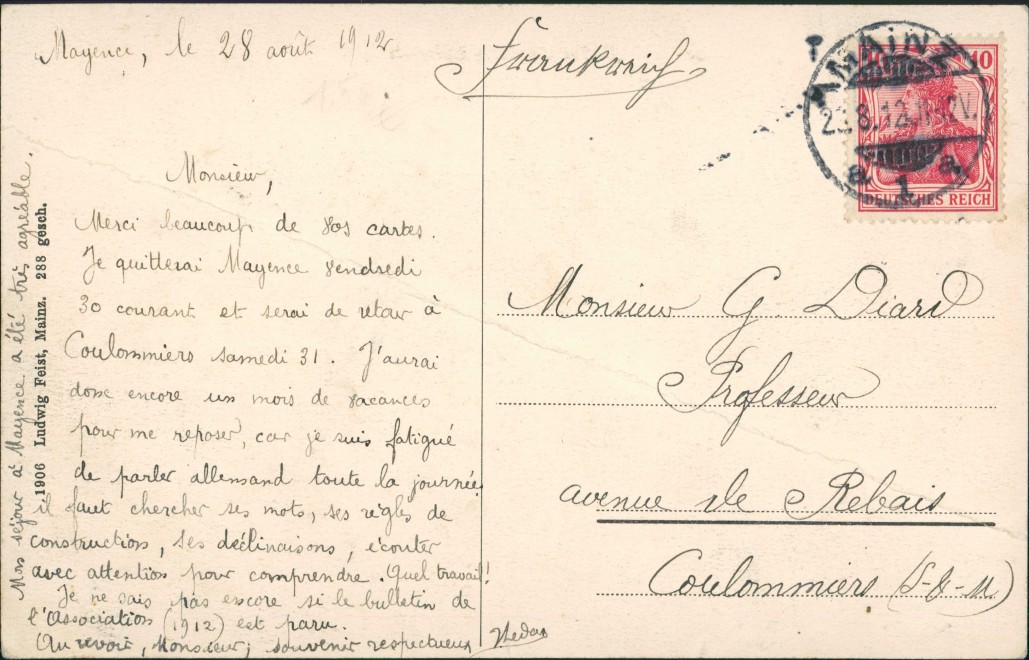 Mayence, le 28 août 1912
Monsieur,
Merci beaucoup de vos cartes.
Je quitterai Mayence vendredi
30 courant et serai de retour à
Coulommiers samedi 31. J'aurai
donc encore un mois de vacances
pour me reposer, car je suis fatigué
de parler allemand toute la journée,
il faut chercher ses mots, ses règles de
construction, ses déclinaisons, écouter
avec attention pour comprendre. Quel travail!
Je ne sais pas encore si le bulletin de
l'Association (1912) est paru.
Au revoir, Monsieur; souvenir respectueux
Mon séjour à Mayence a été très agréable.
1906 Ludwig Feist, Mainz. 288 gesch.
Frankreich
MAINZ
8.12
a 1 a
10
DEUTSCHES REICH
Monsieur G. Diard
Professeur
avenue de Rebais
Coulommiers (S-&-M)